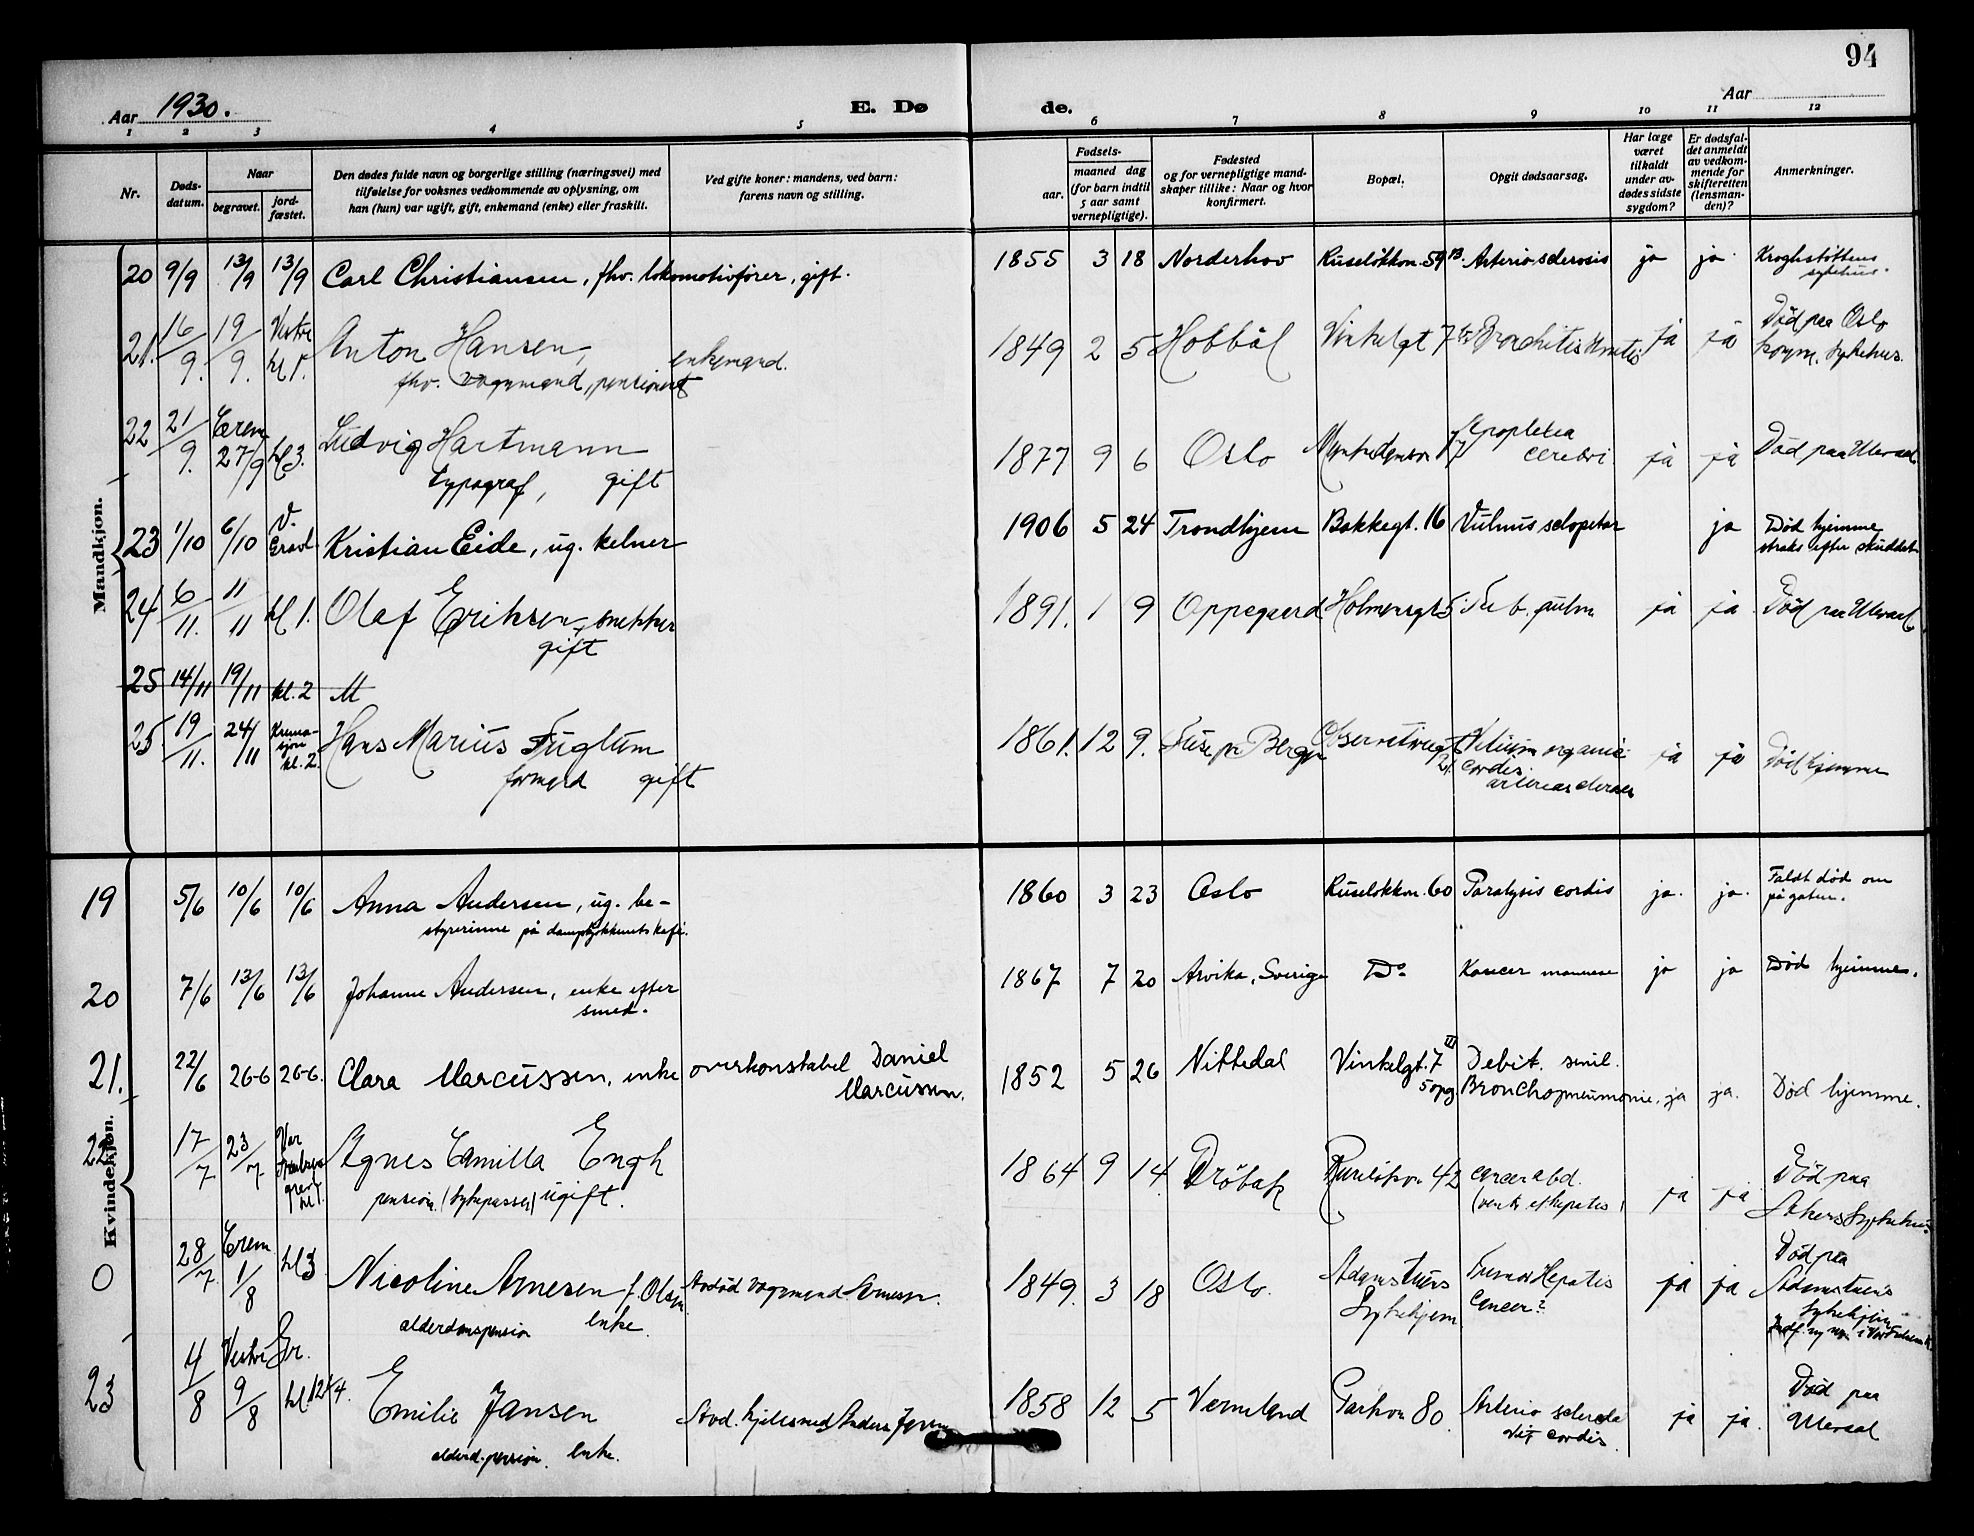 94
Aar 1930.
E. Dø de.
Aar
1 2 3 4 5 6 7 8 9 10 11 12
Nr.
Døds-
datum.
Naar
begravet.
jord-
fæstet.
Den dødes fulde navn og borgerlige stilling (næringsvei) med
tilføielse for voksnes vedkommende av oplysning, om
han (hun) var ugift, gift, enkemand (enke) eller fraskilt.
Ved gifte koner: mandens, ved barn:
farens navn og stilling.
Fødsels-
aar.
maaned dag
(for barn indtil
5 aar samt
vernepligtige).
Fødested
og for vernepligtige mand-
skaper tillike: Naar og hvor
konfirmert.
Bopæl.
Opgit dødsaarsag.
Har læge
været
tilkaldt
under av-
dødes sidste
sygdom?
Er dødsfal-
det anmeldt
av vedkom-
mende for
skifteretten
(lensman-
den)?
Anmerkninger.
Mandkjøn.
20 9/9 13/9 13/9 Carl Christiansen, fhv. lokomotivfører, gift. 1855 3 18 Norderhov Ruseløkkvn. 59 B. Arterio-sclerosis ja ja. Kroghstøttens
sykehus.
21. 16/9. 19/9. Vestre
kl 1. Anton Hansen, enkemand.
fhv. vognmand, pensionert
1849 2 5 Hobbøl Vinkelgt 7 ja ja Død paa Oslo
komm. sykehus.
22 21/9. Crem
27/9 kl 3. Ludvig Hartmann
typograf, gift
1877 9 6 Oslo 17 Apoplexia
cerebri ja ja Død paa Ullevaal
23 1/10 6/10 V.
Gravl. Kristian Eide, ug. kelner 1906 5 24 Trondhjem Bakkegt. 16 Vulnus sclopetar ja Død hjemme
straks efter skuddet
24 6/11. 11/11 kl 1. Olaf Eriksen, snekker
gift
1891. 1 9 Oppegaard Holmensgt 5. Tub. pulm ja ja Død paa Ullevaal.
25 14/11 19/11 kl. 2 M
25. 19/11. 24/11 Krema-
sjon
kl. 2. Hans Marius Fuglum
formand gift
1861. 12 9. Bergen Observatoriegt
21. Vitium organic
cordis.
ja ja Død hjemme
Kvindekjøn.
19 5/6 10/6 10/6 Anna Andersen, ug. be-
styrerinne på dampkjøkkenets kafé. 1860 3 23 Oslo Ruseløkkvn. 60 Paralysis cordis ja. ja. Faldt død om
på gaten.
20 7/6 13/6 13/6 Johanne Andersen, enke efter
smed. 1867 7 20 Arvika, Sverige Do Kancer mammae ja ja Død hjemme.
21. 22/6 26-6 26-6. Clara Marcussen, enke overkonstabel Daniel
Marcussen. 1852 5 26 Nittedal Vinkelgt. 7 III
5 opg. Debit. senil.
Bronchopneumonie. ja ja. Død hjemme.
22 17/7 23/7 Vor
Frelsers
grav
kl 1. Agnes Camilla Engh
pension (sykepasser) ugift.
1864 9 14. Drøbak Ruseløkvn 42 cancer abd.
(ventr. et hepatis) ja ja Død paa
Akers sykehus
0 28/7. Crem
1/8 kl 3 Nicoline Arnesen f. Olsen
alderdomspension enke.
Avdød vognmand Arnesen. 1849. 3 18 Oslo. Adamstuens
Sykehjem Tumor Hepatis
Cancer? ja ja Død paa
Adamstuens
sykehjem
23 4/8 Vestre Gr.
9/8 kl 12 1/4. Emilie Jansen
alderd. pension. enke.
1858 12 5 Vermland Parkvn 80. Arterio sclerda
vit cordis. ja ja. Død paa
Ullevaal